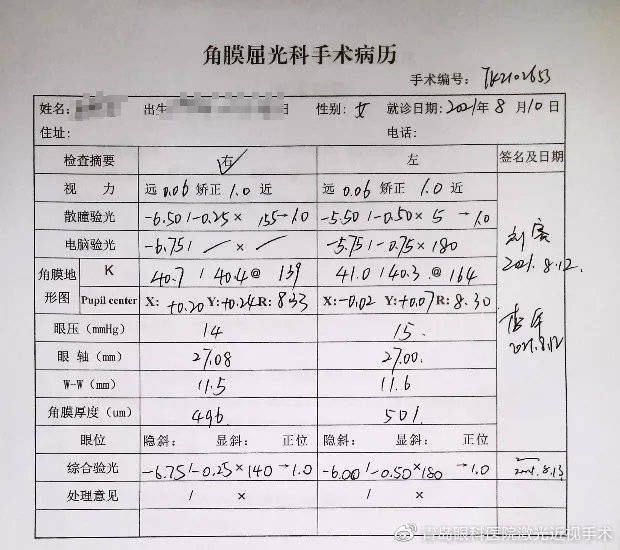 角膜屈光科手术病历
手术编号：TK2102653
姓名： 出生 日 性别：女 就诊日期：2021年8月10日
住址： 电话：
检查摘要 右 左 签名及日期
视力 远 0.06 矫正 1.0 近 远 0.06 矫正 1.0 近
散瞳验光 -6.50/-0.25× 155→1.0 -5.50/-0.50× 5 →1.0
电脑验光 -6.75/ × -5.75/-0.75×180
2021.8.12.
角膜地形图 K 40.7/40.4@ 139 41.0/40.3@ 164
Pupil center X: +0.20 Y:+0.24 R: 8.33 X:-0.02 Y:+0.07 R: 8.30
眼压（mmHg） 14 15.
2021.8.12
眼轴（mm） 27.08 27.00.
W-W（mm） 11.5 11.6
角膜厚度（um） 496. 501.
眼位 隐斜： 显斜： 正位 隐斜： 显斜： 正位
综合验光 -6.75/-0.25×140→1.0 -6.00/-0.50×180 →1.0 2021.8.13
处理意见 / × / ×
@青岛眼科医院激光近视手术